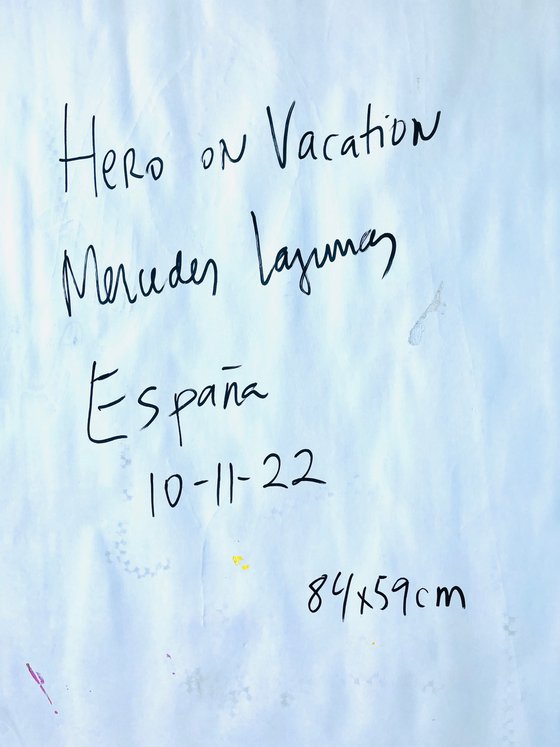 Hero on Vacation
Mercedes Lagunas
España
10-11-22
84x59cm